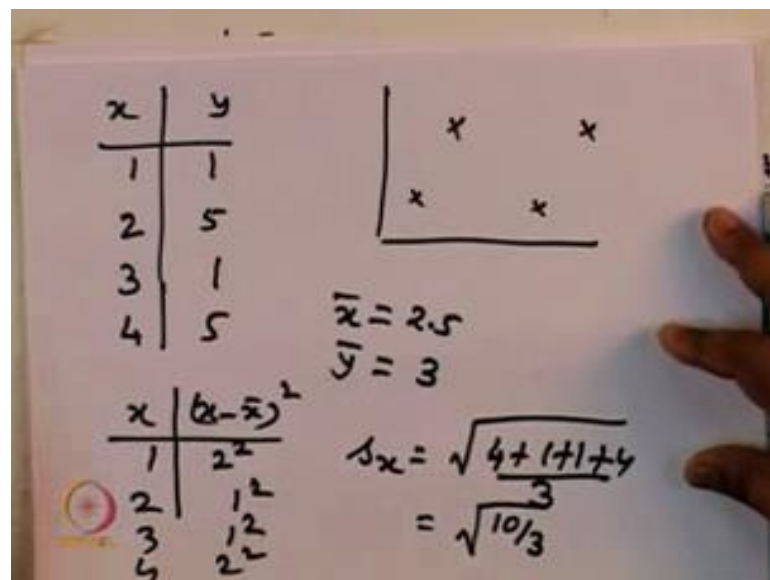 x | y
1 | 1
2 | 5
3 | 1
4 | 5
x̄ = 2.5
ȳ = 3
x | (x-x̄)²
1 | 2²
2 | 1²
3 | 1²
4 | 2²
sx = √(4+1+1+4 / 3)
= √10/3